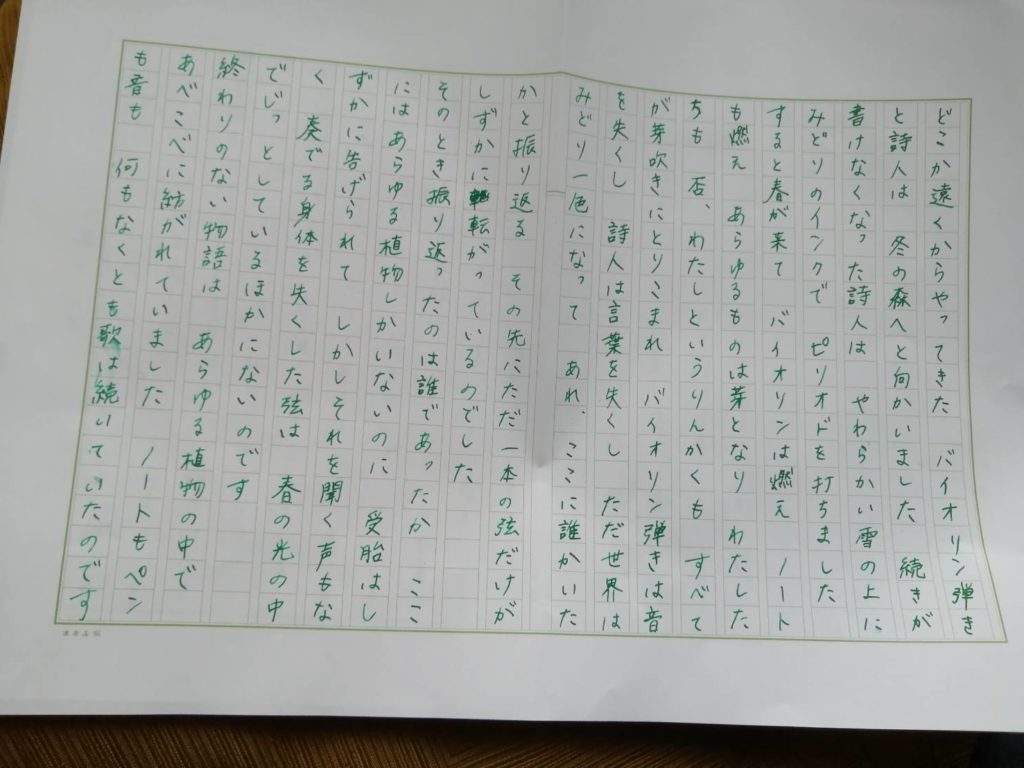 どこか遠くからやってきた　バイオリン弾き
と詩人は　冬の森へと向かいました　続きが
書けなくなった詩人は　やわらかい雪の上に
みどりのインクで　ピリオドを打ちました
すると春が来て　バイオリンは燃え　ノート
も燃え　あらゆるものは芽となり　わたした
ちも　否、わたしというりんかくも　すべて
が芽吹きにとりこまれ　バイオリン弾きは音
を失くし　詩人は言葉を失くし　ただ世界は
みどり一色になって　あれ、ここに誰かいた
かと振り返る　その先にただ一本の弦だけが
しずかに転がっているのでした
そのとき振り返ったのは誰であったか　ここ
にはあらゆる植物しかいないのに　受胎はし
ずかに告げられて　しかしそれを聞く声もな
く　奏でる身体を失くした弦は　春の光の中
でじっとしているほかにないのです
終わりのない物語は　あらゆる植物の中で
あべこべに紡がれていました　ノートもペン
も音も　何もなくとも歌は続いていたのです